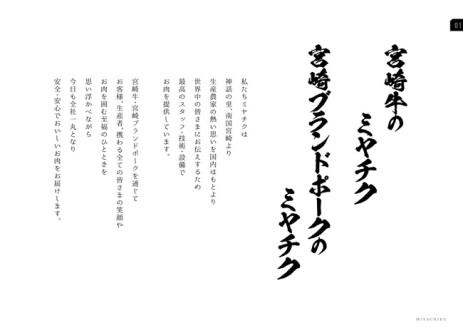 宮崎牛の
ミヤチク
宮崎ブランドポークの
ミヤチク
私たちミヤチクは
神話の里、南国宮崎より
生産農家の熱い思いを国内はもとより
世界中の皆さまにお伝えするため
最高のスタッフ・技術・設備で
お肉を提供しています。
宮崎牛・宮崎ブランドポークを通じて
お客様、生産者、携わる全ての皆さまの笑顔や
お肉を囲む至福のひとときを
思い浮かべながら
今日も全社一丸となり
安全・安心でおいしいお肉をお届けします。
01
MIYACHIKU